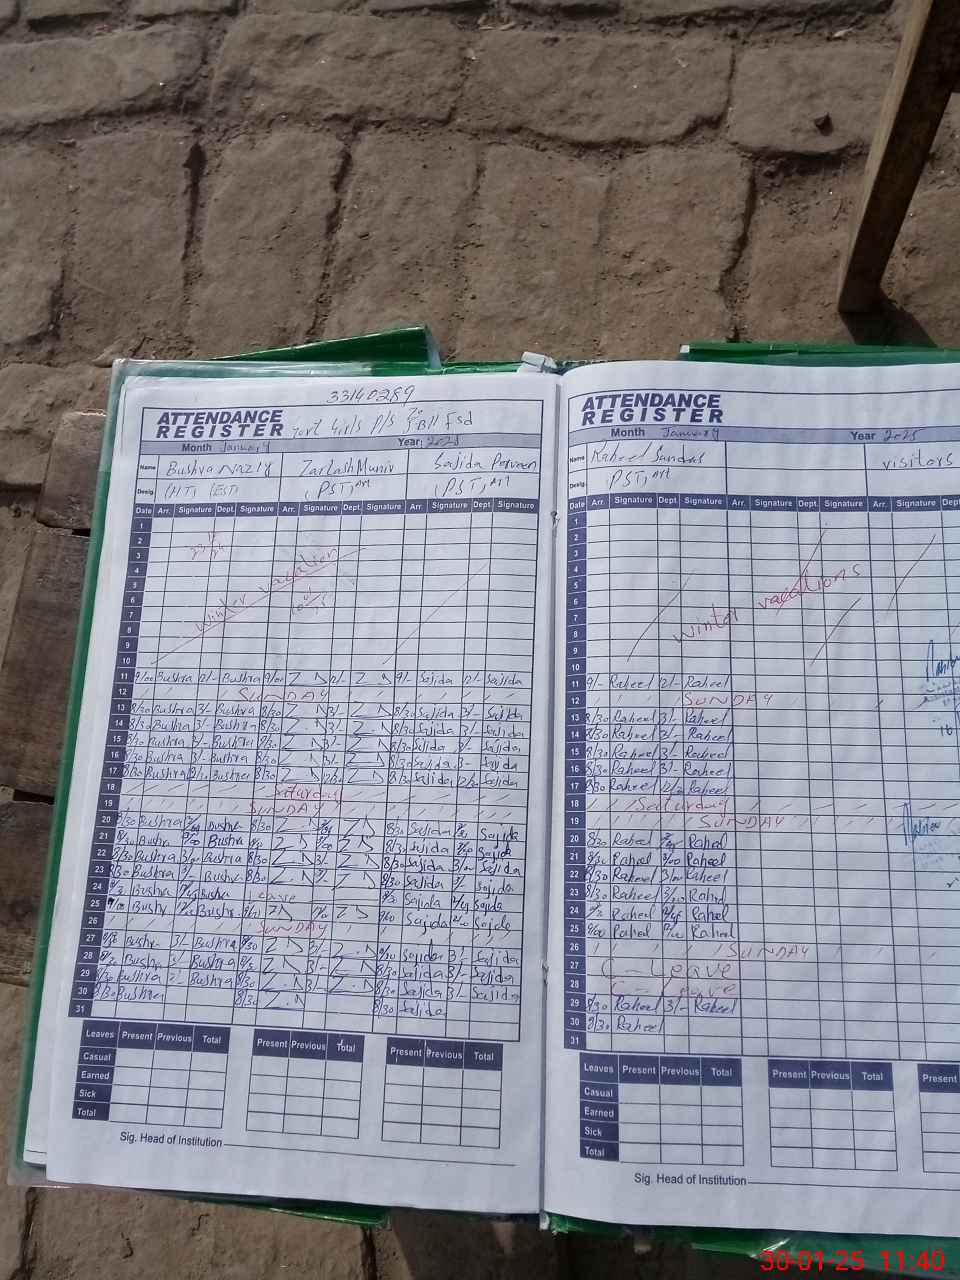 33140289
ATTENDANCE
REGISTER
Govt Girls P/S
Fsd
Month January Year 2025
Name Bushra Nazir Zarlash Munir Sajida Parveen
Desig. PST, Art PST, Art
Date Arr. Signature Dept. Signature Arr. Signature Dept. Signature Arr. Signature Dept. Signature
1
2
3
4
5
6
7
8
9
10
Winter vacation
11 9/00 Bushra 12/- Bushra 9/00 12/- 9/- Sajida 12/- Sajida
12 SUNDAY
13 8/30 Bushra 3/- Bushra 8/30 3/- 8/30 Sajida 3/- Sajida
14 8/30 Bushra 3/- Bushra 8/30 3/- 8/30 Sajida 3/- Sajida
15 8/30 Bushra 3/- Bushra 8/30 3/- 8/30 Sajida 3/- Sajida
16 8/30 Bushra 3/- Bushra 8/30 3/- 8/30 Sajida 3/- Sajida
17 8/30 Bushra Bushra 8/30 8/30 Sajida Sajida
18 Saturday
19 SUNDAY
20 8/30 Bushra Bushra 8/30 8/30 Sajida Sajida
21 8/30 Bushra Bushra 8/30 Sajida Sajida
22 8/30 Bushra Bushra 8/30 3/- 8/30 Sajida Sajida
23 8/30 Bushra Bushra 8/30 8/30 Sajida Sajida
24 Bushra Bushra Leave Sajida Sajida
25 Bushra Bushra Sajida Sajida
26 SUNDAY
27 8/30 Bushra 3/- Bushra 8/30 8/30 Sajida 3/- Sajida
28 8/30 Bushra Bushra 3/- 8/30 Sajida 3/- Sajida
29 8/30 Bushra Bushra 8/30 3/- 8/30 Sajida 3/- Sajida
30 8/30 Bushra 8/30 8/30 Sajida
31
Leaves Present Previous Total Present Previous Total Present Previous Total
Casual
Earned
Sick
Total
Sig. Head of Institution
ATTENDANCE
REGISTER
Month January Year 2025
Name Raheel Sundas visitors
Desig. PST, Art
Date Arr. Signature Dept. Signature Arr. Signature Dept. Signature Arr. Signature
1
2
3
4
5
6
7
8
9
10
Winter vacations
11 9/- Raheel 12/- Raheel
12 SUNDAY
13 8/30 Raheel 3/- Raheel
14 8/30 Raheel Raheel
15 8/30 Raheel 3/- Raheel
16 8/30 Raheel 3/- Raheel
17 8/30 Raheel Raheel
18 Saturday
19 SUNDAY
20 8/30 Raheel Raheel
21 8/30 Raheel Raheel
22 8/30 Raheel 3/00 Raheel
23 8/30 Raheel Raheel
24 Raheel Raheel
25 9/00 Raheel Raheel
26 SUNDAY
27 C-Leave
28 C-Leave
29 8/30 Raheel 3/- Raheel
30 8/30 Raheel
31
Leaves Present Previous Total Present Previous Total Present
Casual
Earned
Sick
Total
Sig. Head of Institution
30-01-25 11:40